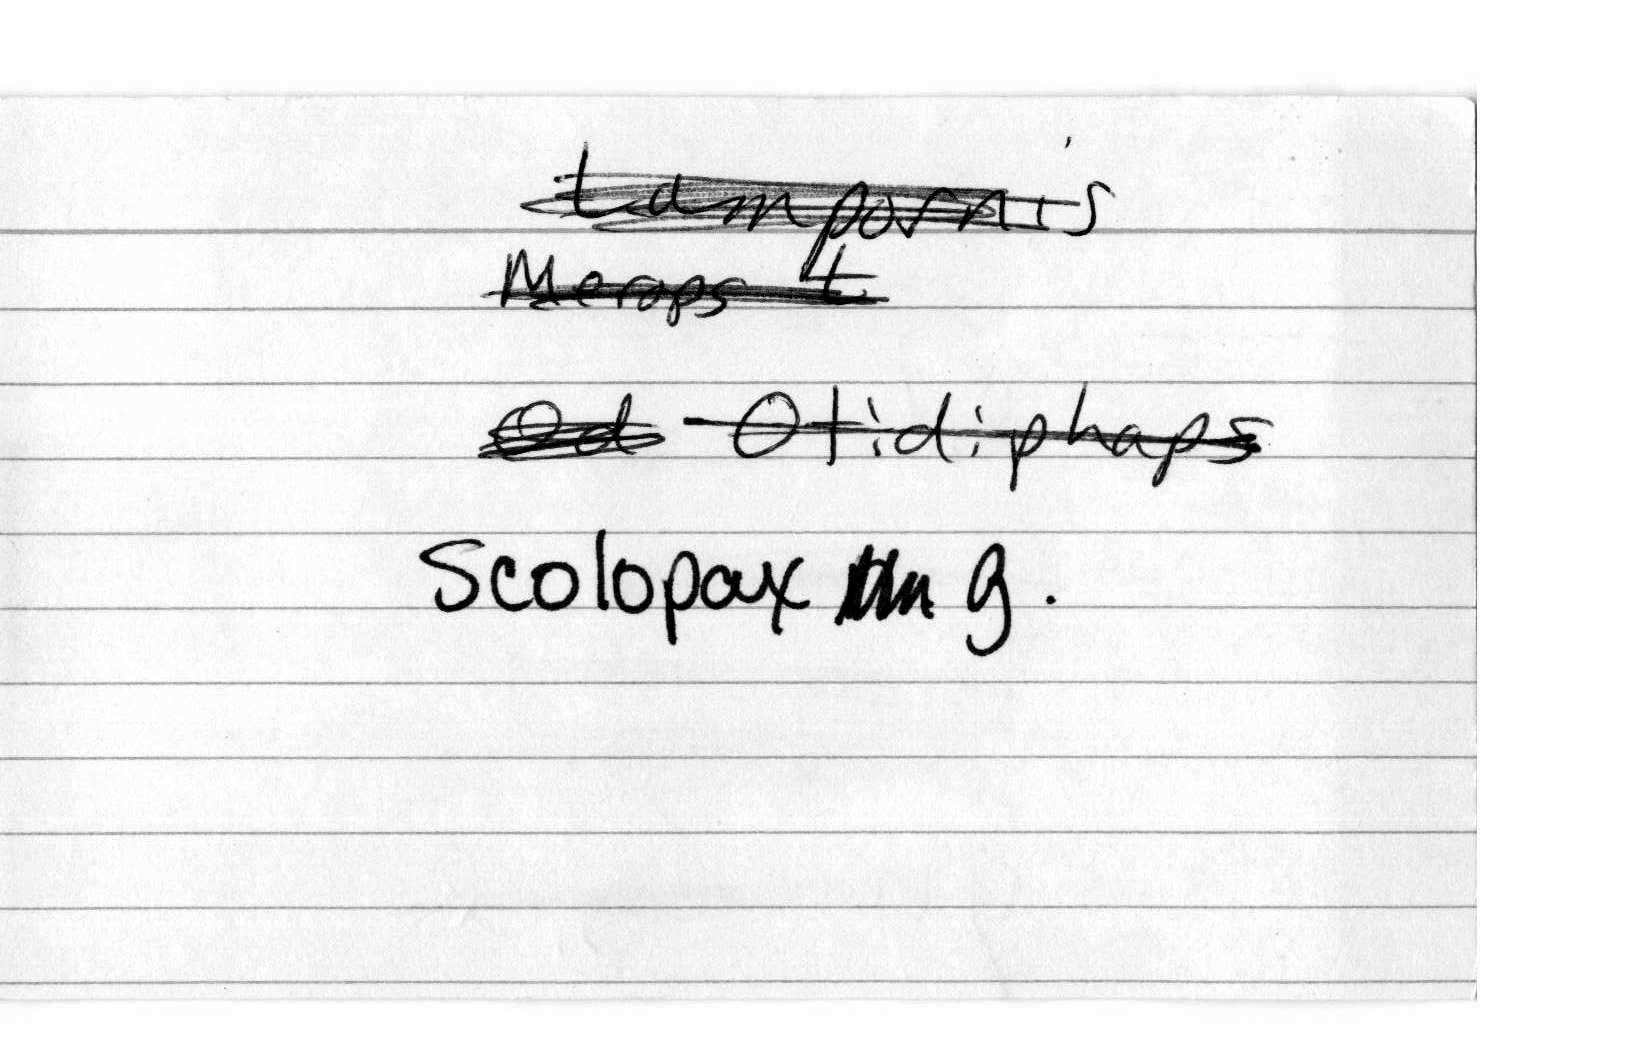 Lampornis
Merops t
Od Otidiphaps
Scolopax g.